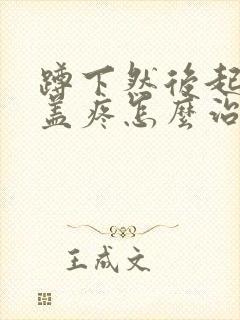 蹲下然後起
盖疼怎麼治
王成文